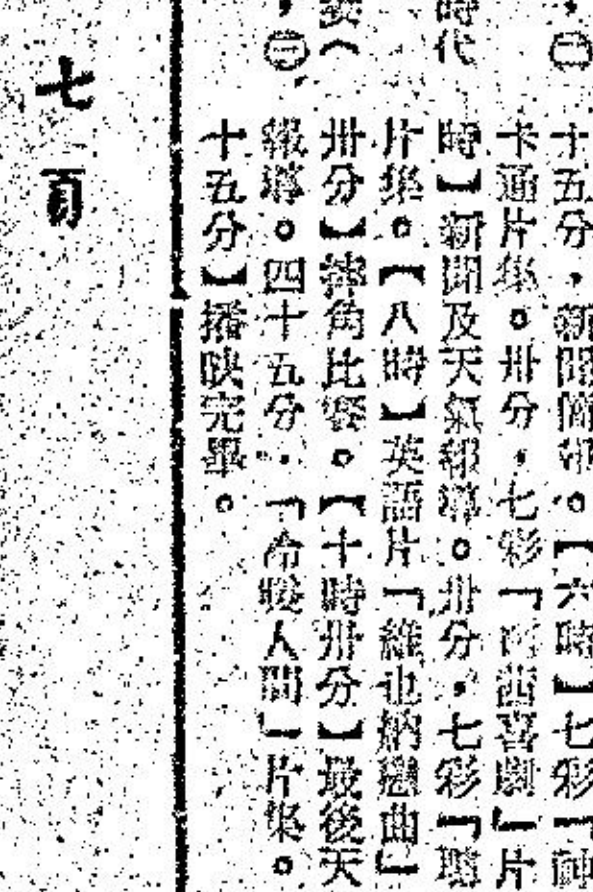 ，㊁　十五分，新聞簡報。【六時】七彩「神
卡通片集。卅分，七彩「西茜喜劇」片
時代　時】新聞及天氣報導。卅分，七彩「聰
片集。【八時】英語片「維也納戀曲」
（　卅分】摔角比賽。【十時卅分】最後天
，㊂　報導。四十五分，「冷暖人間」片集。
十五分】播映完畢。
七頁